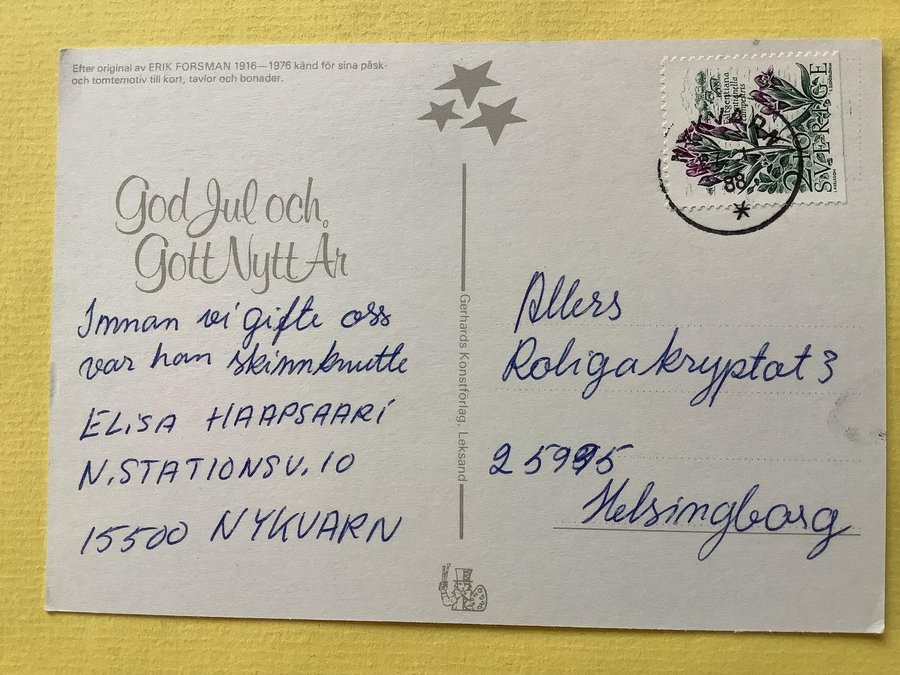 Efter original av ERIK FORSMAN 1916–1976 känd för sina påsk-
och tomtemotiv till kort, tavlor och bonader.
God Jul och
Gott Nytt År
Innan vi gifte oss
var han skinnknutte
ELiSA HAAPSAARi
N.STATIONSV.10
15500 NYKVARN
Gerhards Konstförlag, Leksand
SVERIGE
88
Allers
Roligakryptot 3
25995
Helsingborg